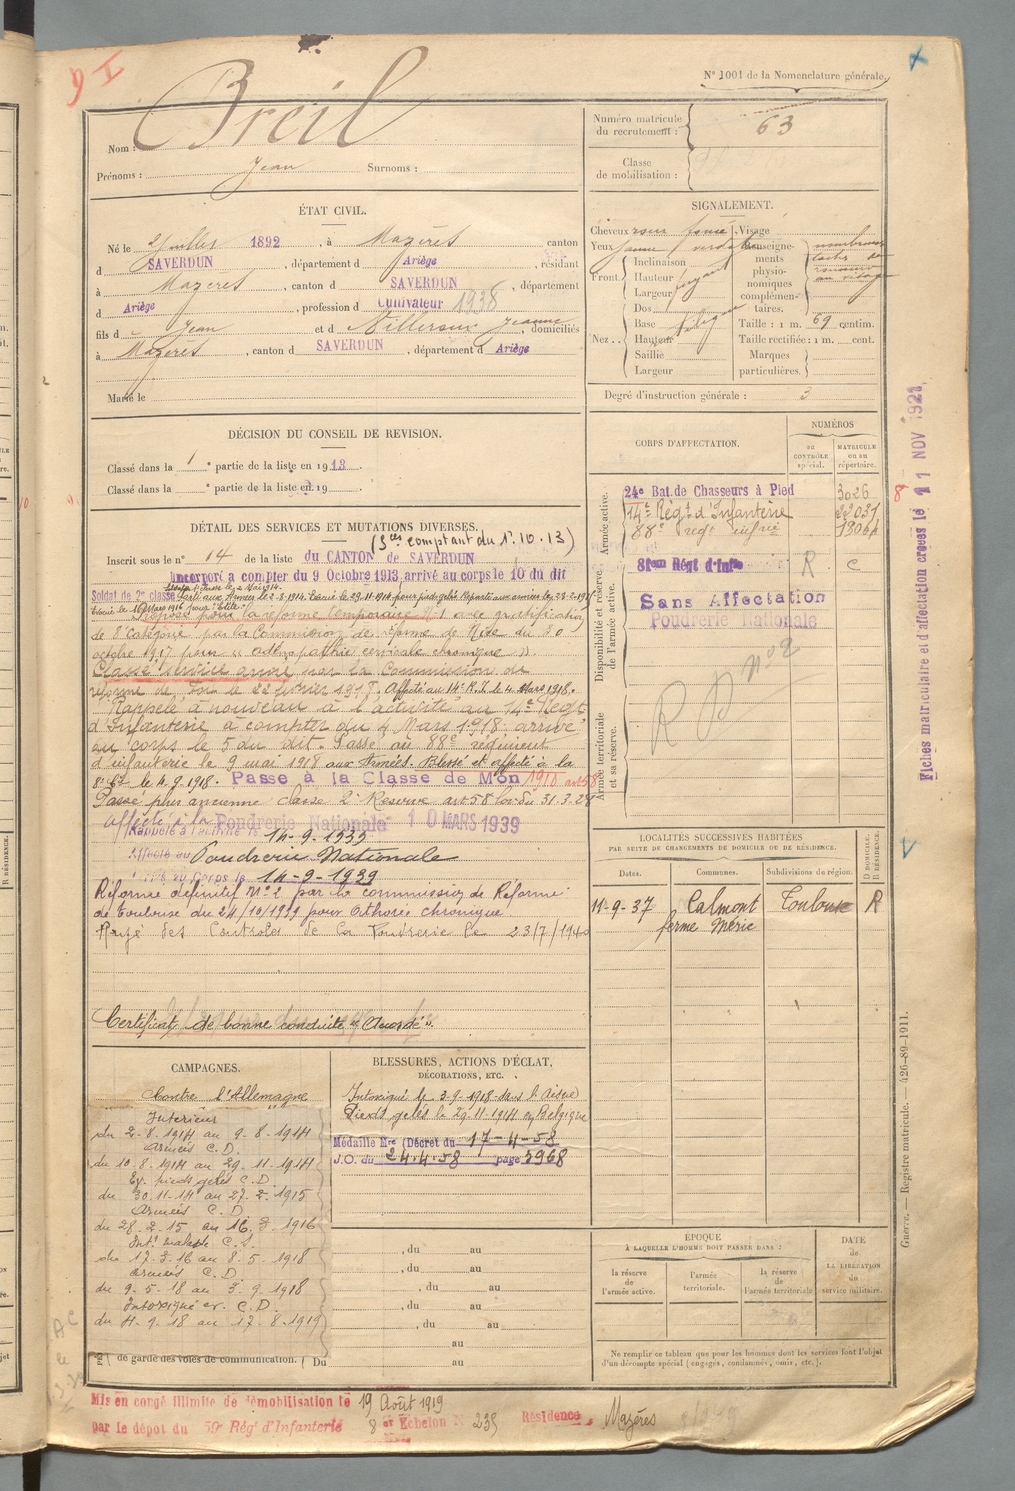 9 I
N° 1001 de la Nomenclature générale.
Breil
Nom :
Prénoms : Jean Surnoms :
Numéro matricule du recrutement : 63
Classe de mobilisation :
ÉTAT CIVIL.
Né le 2 juillet 1892, à Mazères canton
d SAVERDUN, département d Ariège, résidant
à Mazeres, canton d SAVERDUN, département
d Ariège, profession d Cultivateur 1938
fils d Jean et d Jeanne, domiciliés
à Mazères, canton d SAVERDUN, département d Ariège
Marié le
SIGNALEMENT.
Cheveux roux foncé Visage
Yeux jaune verdatre
Renseignements physionomiques complémentaires.
nombreuses taches de rousseur au visage
Front. Inclinaison
Hauteur fuyant
Largeur
Nez.. Dos
Base
Hauteur
Saillie
Largeur
Taille : 1 m. 69 centim.
Taille rectifiée : 1 m. cent.
Marques particulières.
Degré d'instruction générale : 3
DÉCISION DU CONSEIL DE REVISION.
Classé dans la 1e partie de la liste en 1913.
Classé dans la e partie de la liste en 19 .
DÉTAIL DES SERVICES ET MUTATIONS DIVERSES.
(Sces comptant du 1.10.13)
Inscrit sous le n° 14 de la liste du CANTON de SAVERDUN
Incorporé a compter du 9 Octobre 1913 arrivé au corps le 10 du dit
Soldat de 2e classe
Parti aux Armées le 2-8-1914. Evacué le 29-11-1914 pour pieds gelés. Reparti aux armées le 28-2-1915
Evacué le 16 Mars 1916 pour
Proposé pour la réforme temporaire N° 1 avec gratification
de 8e Catégorie par la Commission de réforme de
octobre 1917 pour « chronique ».
Classé service armé par la Commission de
réforme de Foix le 22 février 1918. Affecté au 14e R.I. le 4 Mars 1918.
Rappelé à nouveau à l'activité au 14e Régt
d'Infanterie à compter du 4 Mars 1918 arrivé
au corps le 5 du dit. Passé au 88e régiment
d'infanterie le 9 mai 1918 aux Armées. Blessé et affecté à la
8e Cie le 4.9.1918. Passé à la Classe de Mon 1910 art 58
Passé plus ancienne classe 2e Réserve art 58 loi du 31.3.28
affecté à la Poudrerie Nationale 10 MARS 1939
Rappelé à l'activité le 14-9-1939
Affecté au Poudrerie Nationale
Arrivé au Corps le 14-9-1939
Réformé définitif N° 2 par la commission de Réforme
de Toulouse du 24/10/1939 pour chronique
Rayé des Controles de la Poudrerie le 23/7/1940
Certificat de bonne conduite « Accordé ».
CORPS D'AFFECTATION.
NUMÉROS
au CONTRÔLE spécial.
MATRICULE ou au répertoire.
Armée active.
24e Bat. de Chasseurs à Pied 3026
14e Régt d'Infanterie
88e regt infrie
Disponibilité et réserve de l'armée active.
81em Régt d'Infie R c
Sans Affectation
Poudrerie Nationale
Armée territoriale et sa réserve.
R D n° 2
Fiches matriculaire et d'affectation créées le 11 NOV 192
LOCALITÉS SUCCESSIVES HABITÉES
PAR SUITE DE CHANGEMENTS DE DOMICILE OU DE RÉSIDENCE.
Dates. Communes. Subdivisions de région. D DOMICILE. R RÉSIDENCE.
11-9-37 Calmont Toulouse R
ferme Méric
CAMPAGNES.
Contre l'Allemagne
Intérieur
du 2-8-1914 au 9-8-1914
Armées C.D.
du 10-8-1914 au 29-11-1914
Ev. pieds gelés C.D.
du 30-11-14 au 27-2-1915
Armées C.D.
du 28-2-15 au 16-3-1916
Int. malade C.S.
du 17-3-16 au 8-5-1918
Armées C.D.
du 9-5-18 au 3-9-1918
Intoxiqué ev. C.D.
du 4-9-18 au 17-8-1919
de garde des voies de communication. Du
BLESSURES, ACTIONS D'ÉCLAT,
DÉCORATIONS, ETC.
Intoxiqué le 3-9-1918 dans l'Aisne
Pieds gelés le 29.11.1914 en Belgique
Médaille Mre (Décret du 17-4-58
J.O. du 24.4.58 page 3968
, du au
, du au
, du au
, du au
, du au
au
au
ÉPOQUE
À LAQUELLE L'HOMME DOIT PASSER DANS :
la réserve de l'armée active.
l'armée territoriale.
la réserve de l'armée territoriale
DATE de LA LIBÉRATION du service militaire.
Ne remplir ce tableau que pour les hommes dont les services font l'objet
d'un décompte spécial (engagés, condamnés, omis, etc.).
Guerre. — Registre matricule. — 426-89-1911.
Mis en congé illimité de démobilisation le 19 Août 1919
par le dépôt du 59e Régt d'Infanterie 8e Echelon N° 235 Résidence Mazères